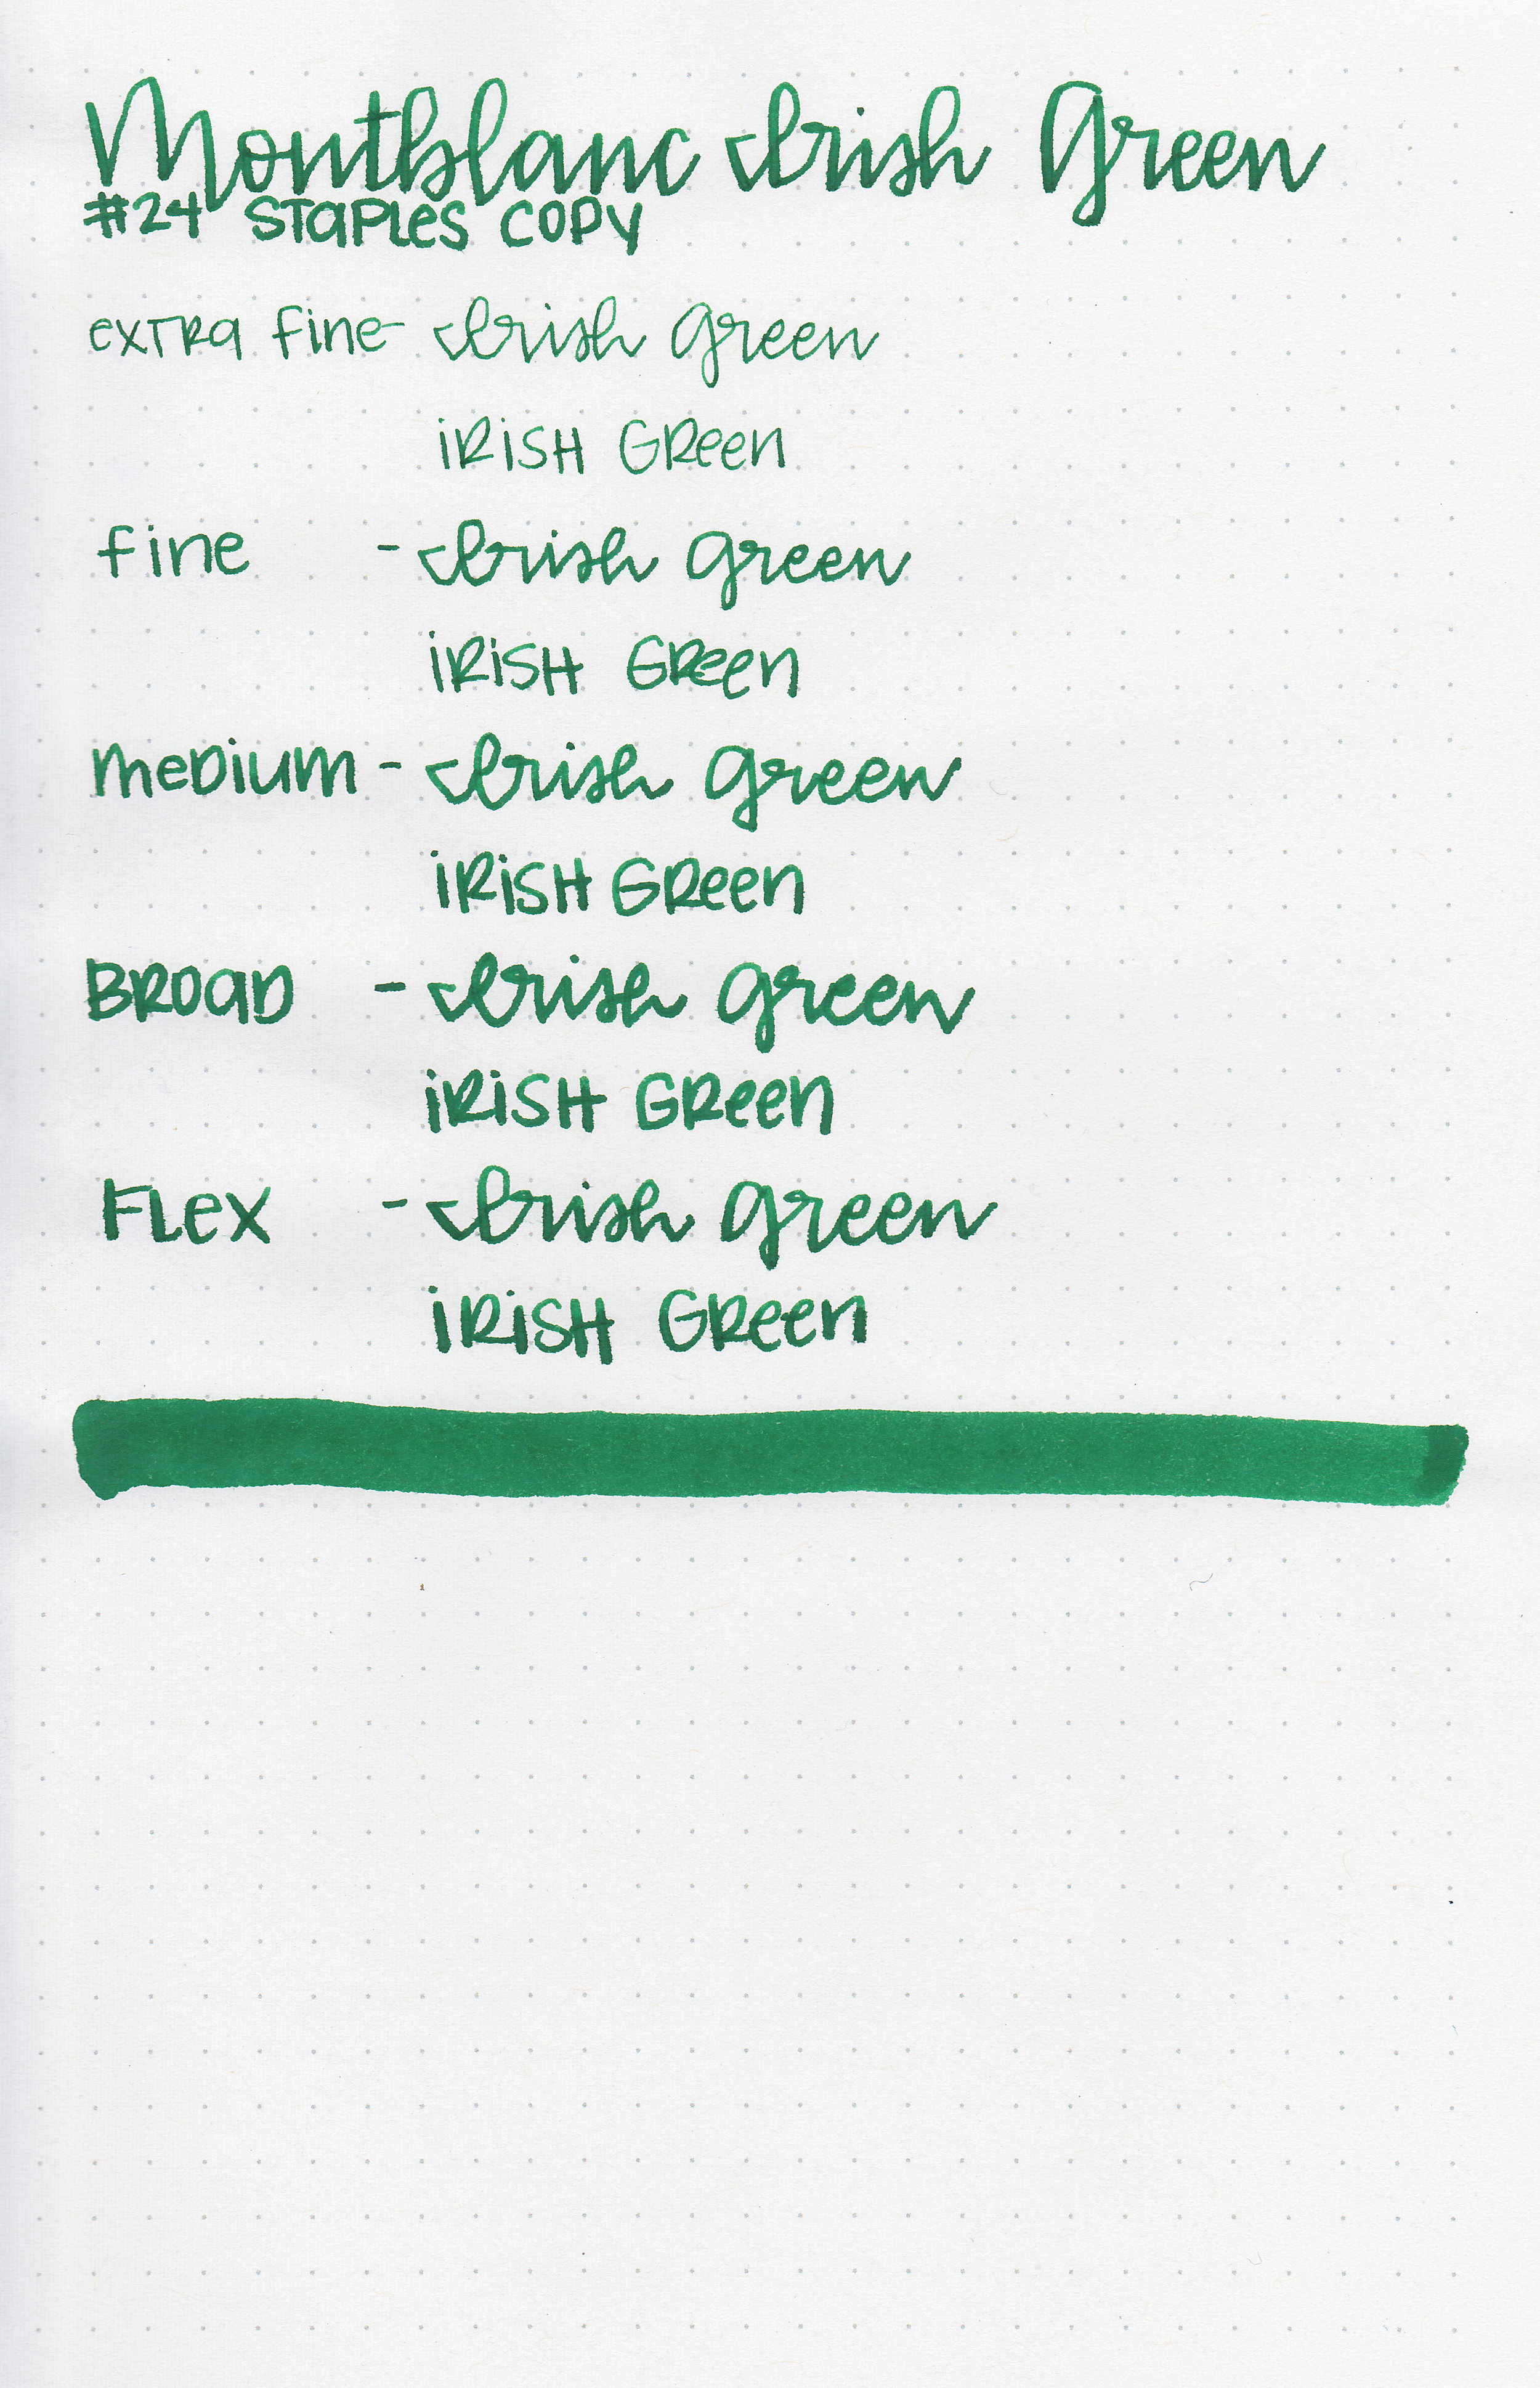 Montblanc Irish Green
#24 Staples Copy
extra fine - Irish Green
IRISH GReen
fine - Irish Green
IRISH GReen
meDium - Irish Green
IRISH GReen
BROaD - Irish Green
IRISH GReen
FLex - Irish Green
IRISH GReen